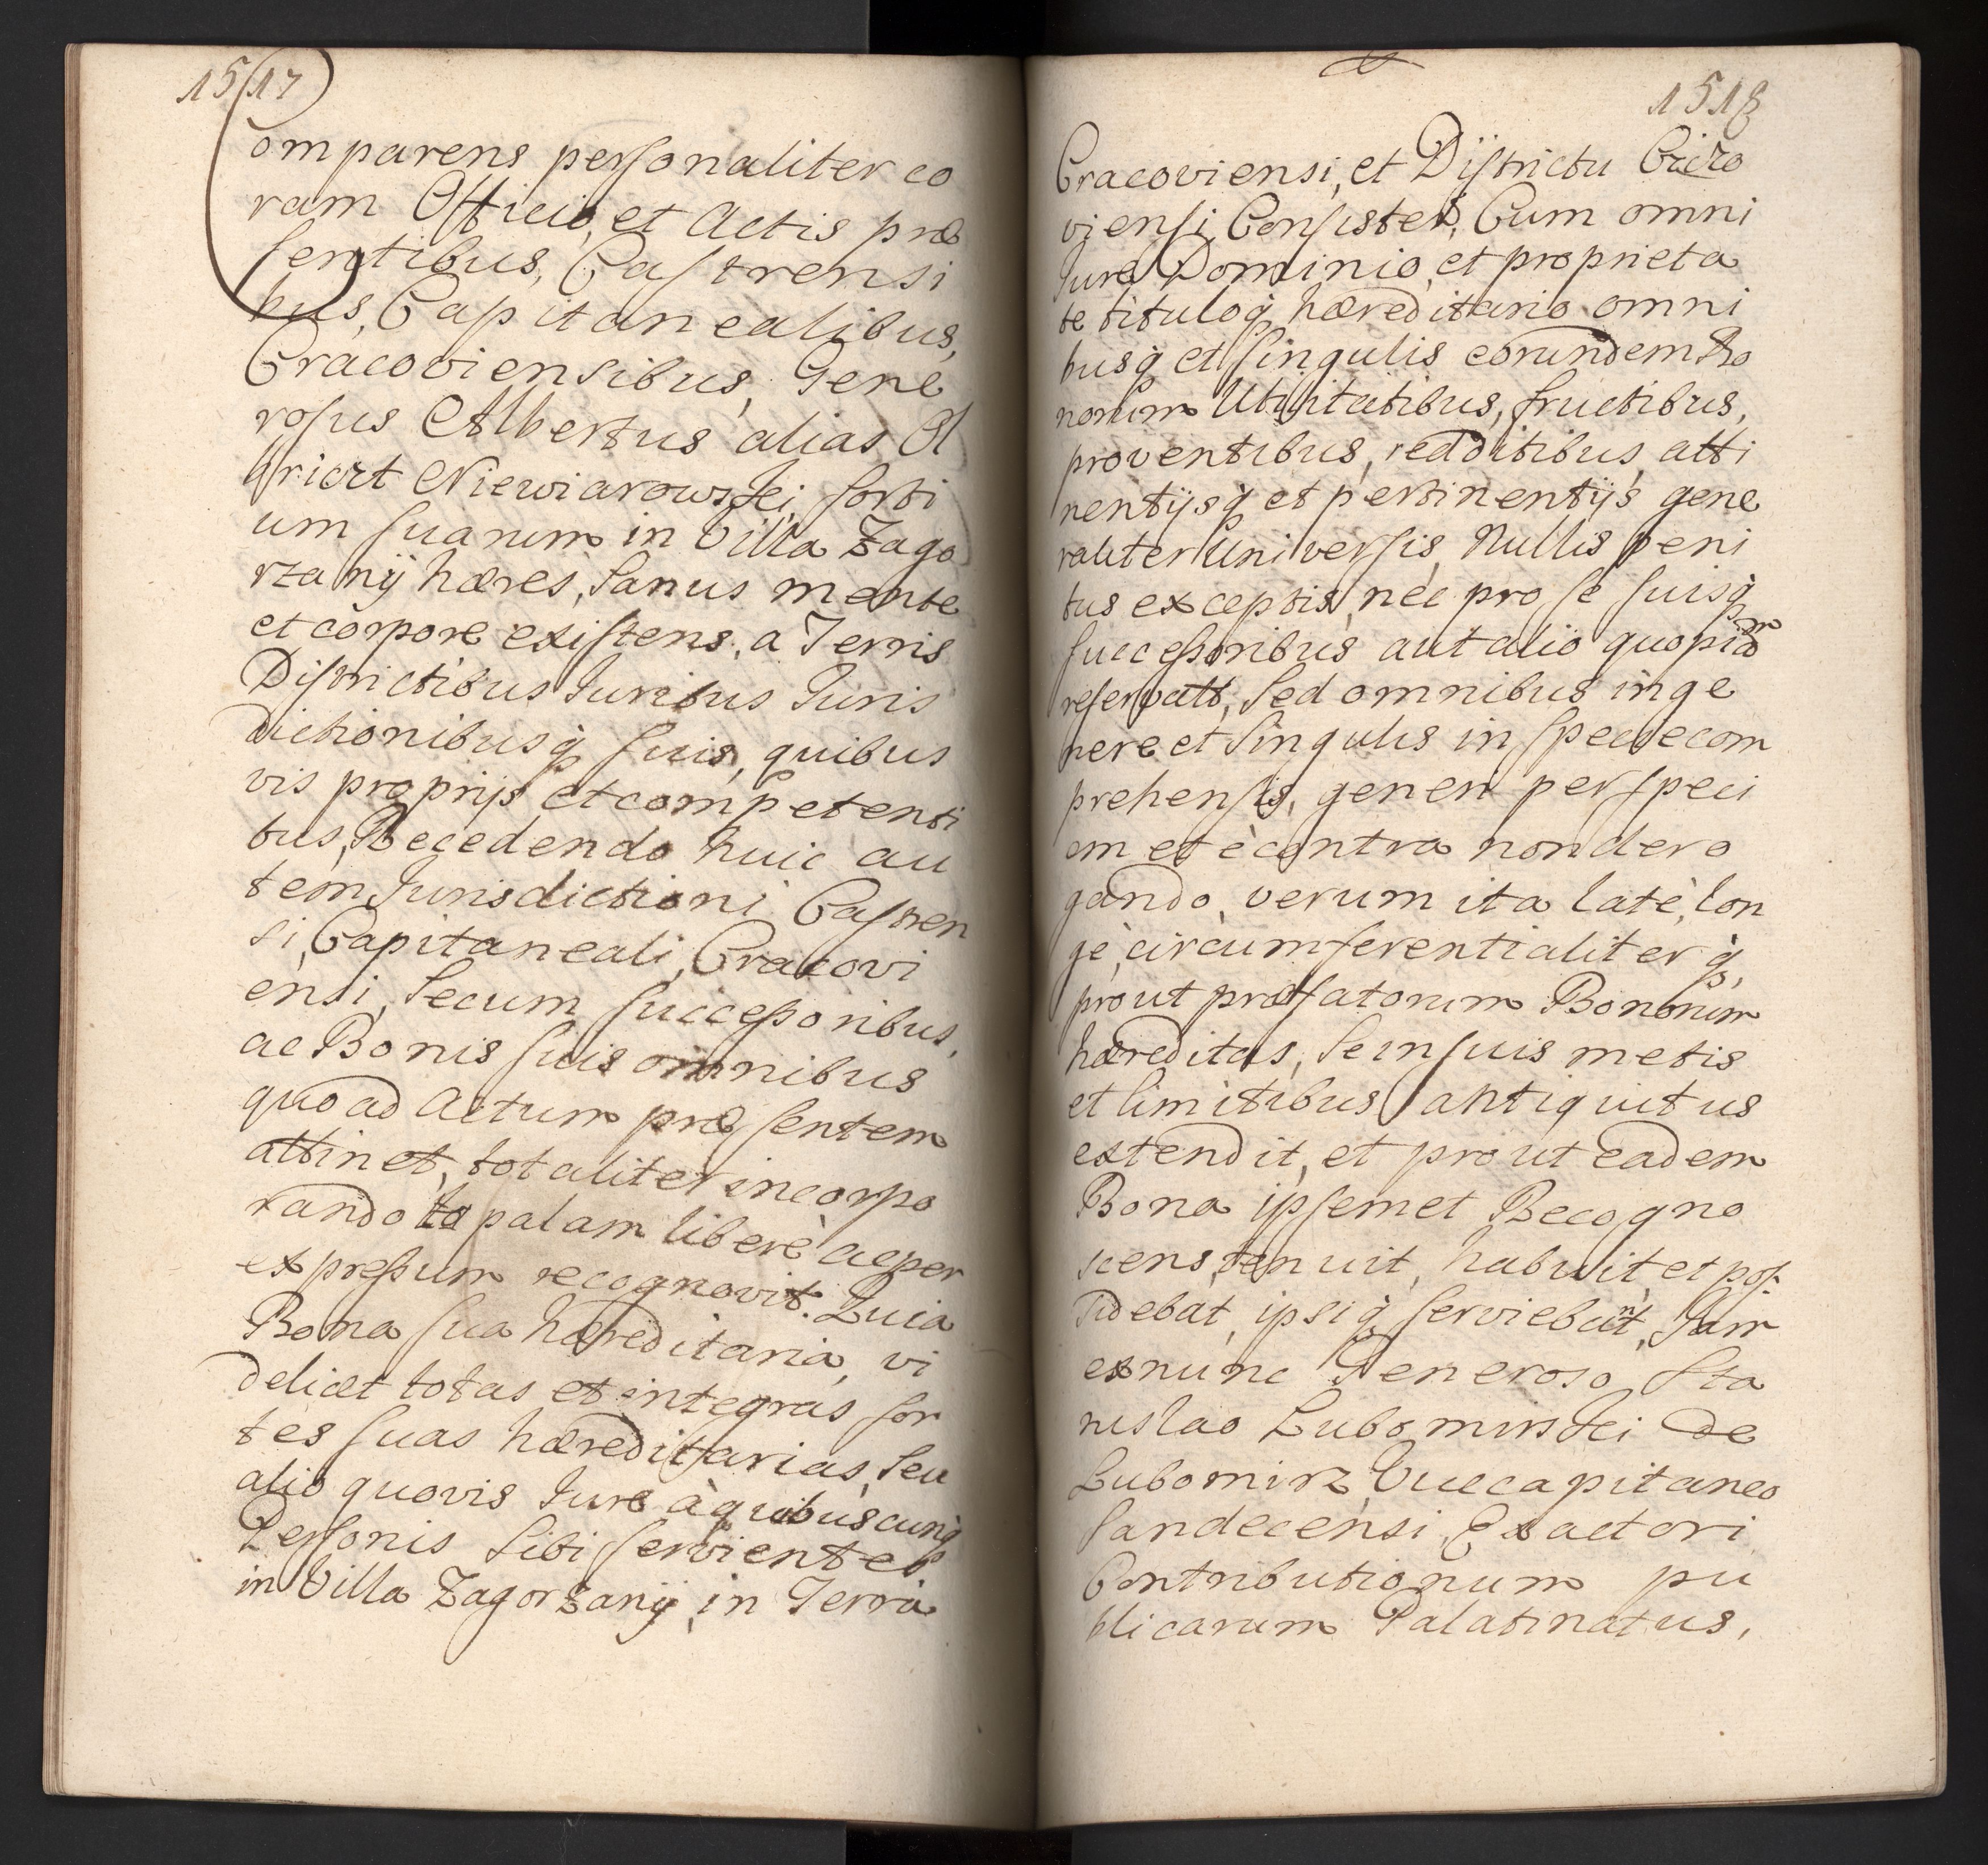 1517
Comparens personaliter co
ram Officio, et Actis præ
sentibus, Castrensi
bus, Capitanealibus,
Cracoviensibus, Gene
rosus Albertus alias Ol
bricht Niewiarowski, sorti
um suarum in Villa Zago
rzanÿ hæres, Sanus mente
et corpore existens, a Terris
Districtibus Iuribus Iuris
dictionibusq; suis, quibus
vis proprijs et competenti
bus, Recedendo huic au
tem Jurisdictioni Castren
si, Capitaneali, Cracovi
ensi, Secum Successoribus,
ac Bonis suis omnibus
quo ad Actum præsentem
attinet, totaliter incorpo
rando palam liberè ac per
expressum recognovit. Quia
Bona sua hæreditaria, vi
delicet totas et integras sor
tes suas hæreditarias, Seu
alio quovis Iure àquibuscunq;
Personis Sibi servientes
in Villa Zagorzanÿ in Terra
1518
Cracoviensi, et Districtu Czcho
viensi Consisten, Cum omni
Iure Dominio, et proprieta
te tituloq; hæreditario omni
busq; et Singulis eorundem Bo
norum Utilitatibus, fructibus,
proventibus, redditibus, atti
nentijsq; et pertinentijs gene
raliter Universis, Nullis peni
tus exceptis, nec pro se suisq;
successoribus aut alio quopiam
reservatis, Sed omnibus in ge
nere et Singulis in specie com
prehensis, generi per speci
em et è contra non dero
gando, verum ita latè, lon
gè, circumferentialiterq;
prout præfatorum Bonorum
hæreditas, Se in suis metis
et limitibus antiquitus
extendit, et prout eadem
Bona ipsemet Recogno
scens, tenuit, habuit, et pos=
sidebat, ipsiq; serviebant, Jam
ex nunc Generoso Sta
nislao Lubomirski de
Lubomirz Vicecapitaneo
Sandecensi, Exactori
Contributionum pu
blicarum Palatinatus,